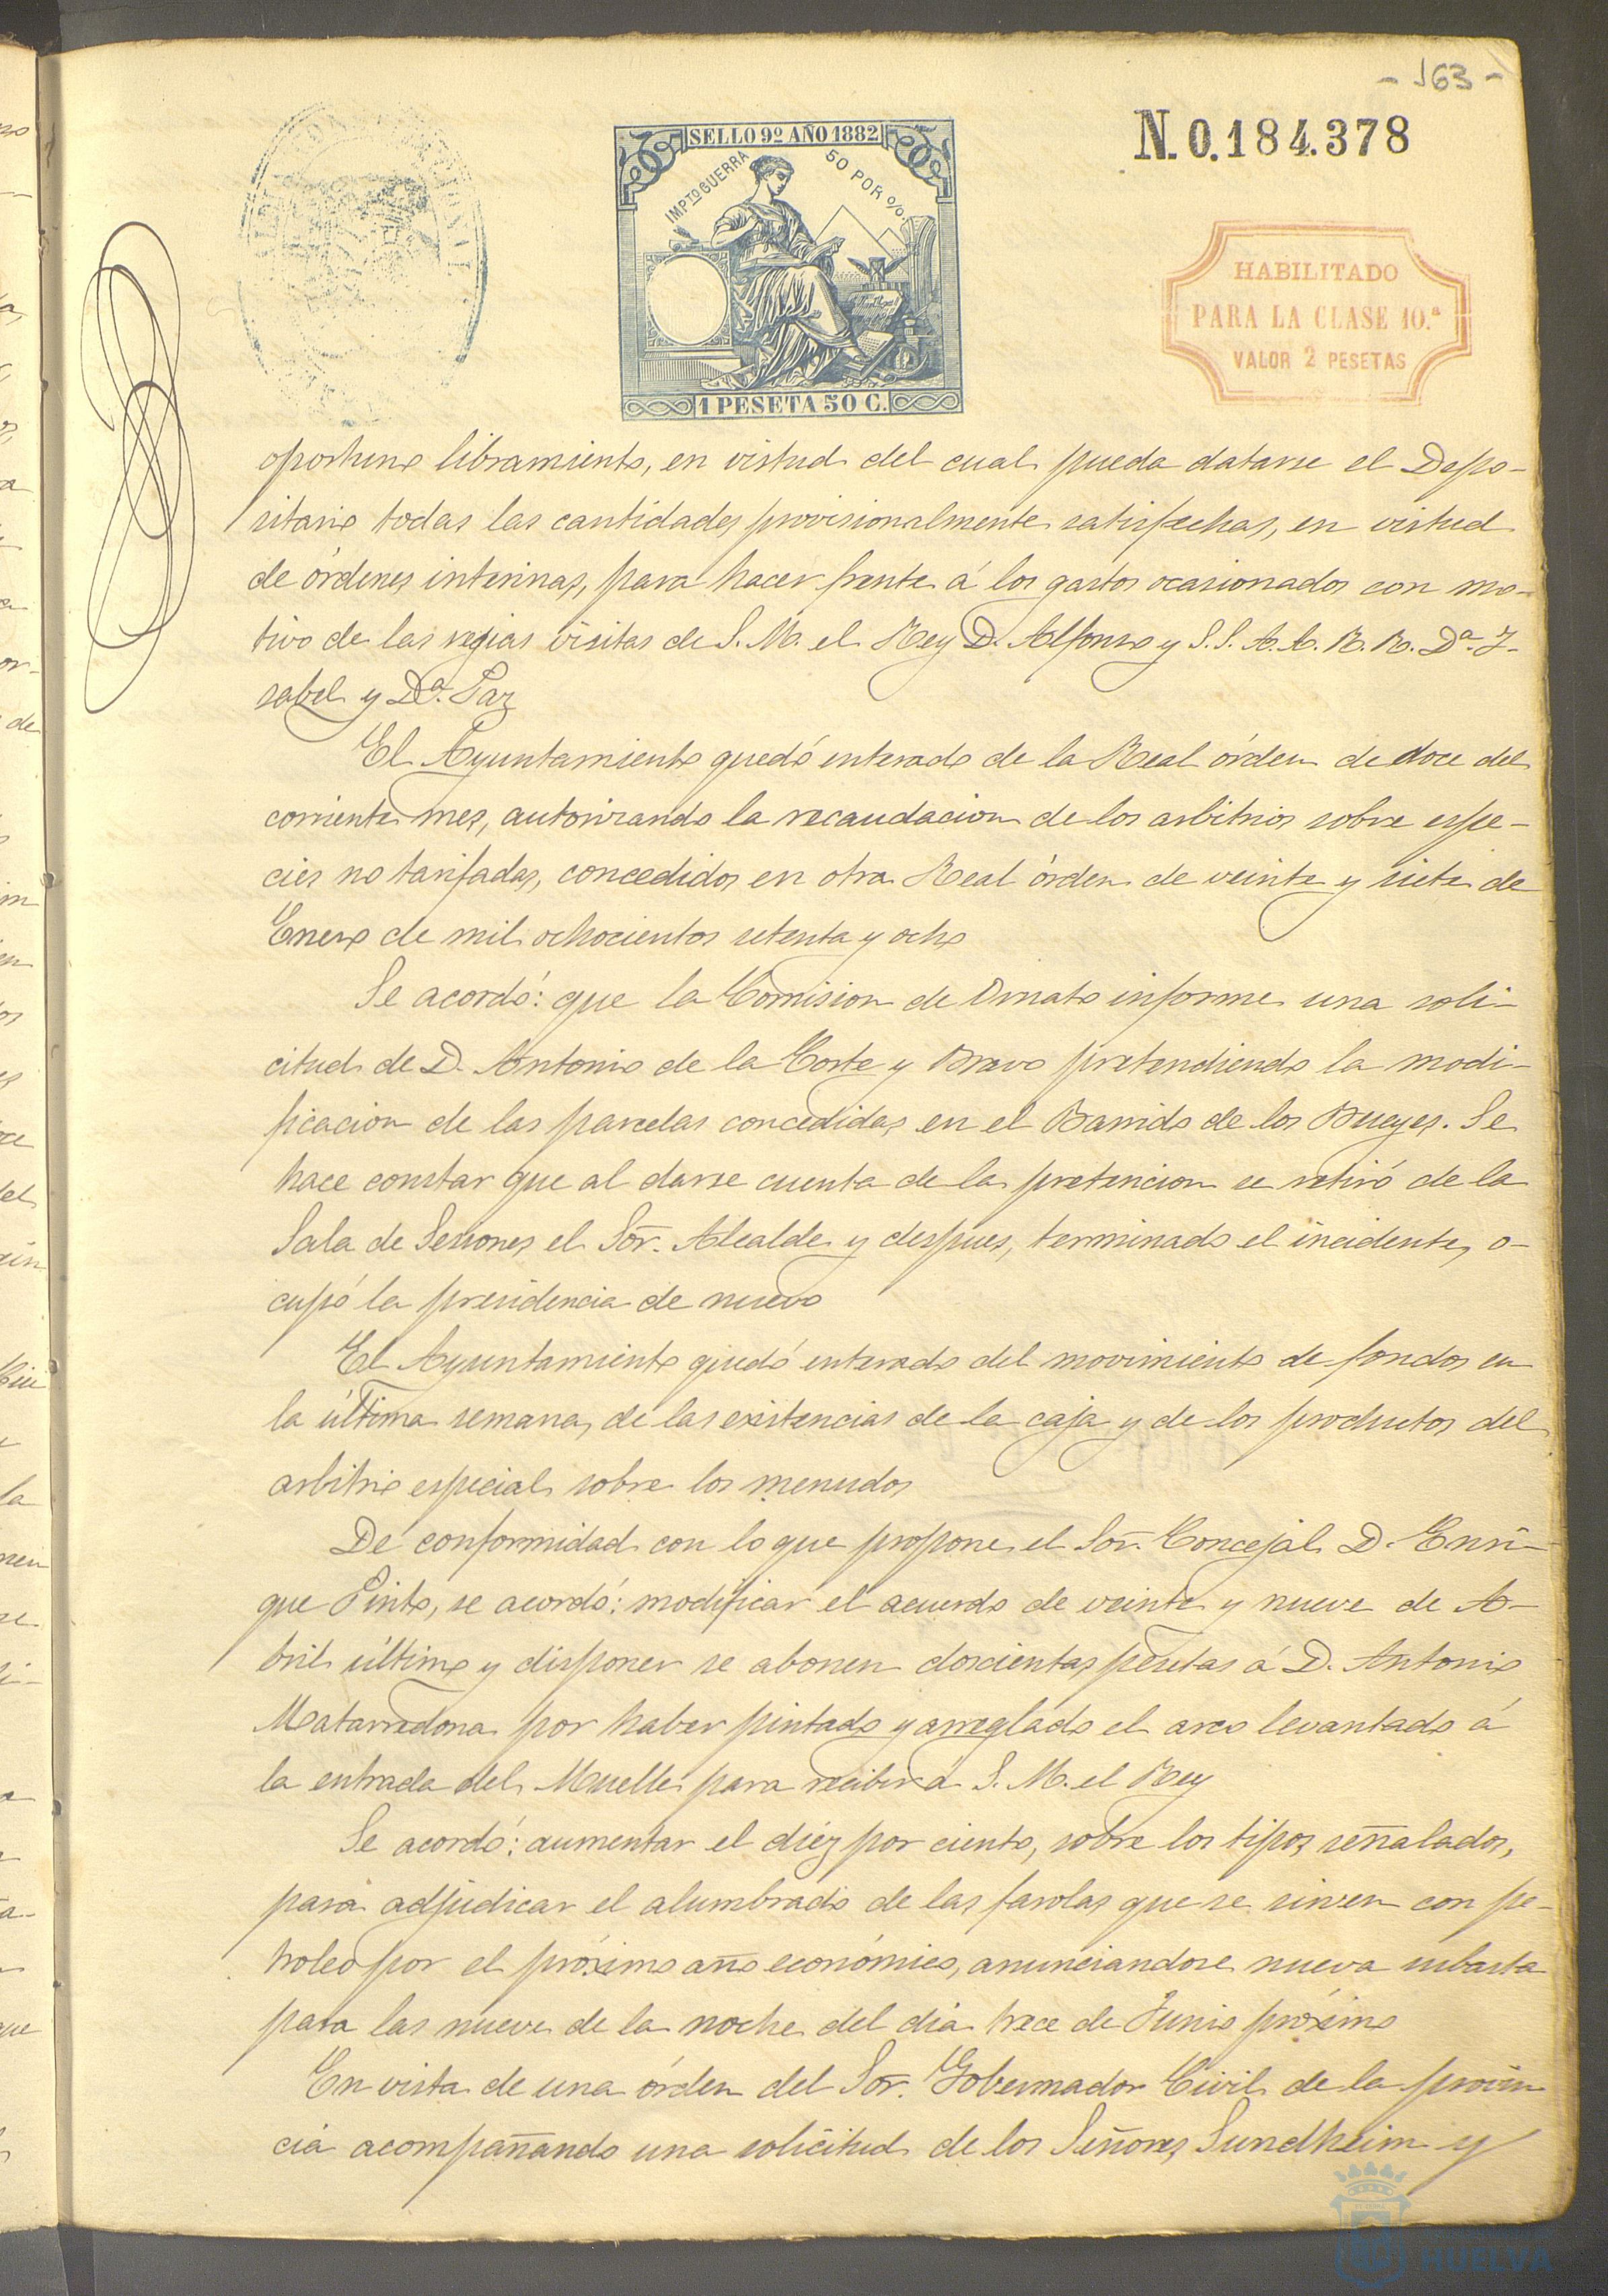 - 163 -
N. 0.184.378
SELLO 9º AÑO 1882
IMPTO GUERRA 50 POR %
1 PESETA 50 C.
HABILITADO
PARA LA CLASE 10.ª
VALOR 2 PESETAS
oportuno libramiento, en virtud del cual pueda datarse el Depo-
sitario todas las cantidades provisionalmente satisfechas, en virtud
de órdenes interinas, para hacer frente á los gastos ocasionados con mo-
tivo de las regias visitas de S. M. el Rey D. Alfonso y S.S. A.A. R. R. Dª. I-
sabel y Dª. Paz
El Ayuntamiento quedó enterado de la Real órden de doce del
corriente mes, autorizando la recaudacion de los arbitrios sobre espe-
cies no tarifadas, concedidos en otra Real órden de veinte y siete de
Enero de mil ochocientos setenta y ocho
Se acordó: que la Comision de Ornato informe una soli-
citud de D. Antonio de la Corte y Bravo pretendiendo la modi-
ficacion de las parcelas concedidas en el Barrido de los Bueyes. Se
hace constar que al darse cuenta de la pretencion se retiró de la
Sala de Sesiones el Sor. Alcalde y despues, terminado el incidente, o-
cupó la presidencia de nuevo
El Ayuntamiento quedó enterado del movimiento de fondos en
la última semana, de las existencias de la caja y de los productos del
arbitrio especial sobre los menudos
De conformidad con lo que propone el Sor. Concejal D. Enri-
que Pinto, se acordó: modificar el acuerdo de veinte y nueve de A-
bril último y disponer se abonen doscientas pesetas á D. Antonio
Matarredona por haber pintado y arreglado el arco levantado á
la entrada del Muelle para recibir á S. M. el Rey
Se acordó: aumentar el diéz por ciento, sobre los tipos señalados,
para adjudicar el alumbrado de las farolas que se sirven con pe-
troleo por el próximo año económico, anunciandose nueva subasta
para las nueve de la noche del dia trece de Junio próximo
En vista de una órden del Sor. Gobernador Civil de la provin
cia acompañando una solicitud de los Señores Sundheim y
HUELVA